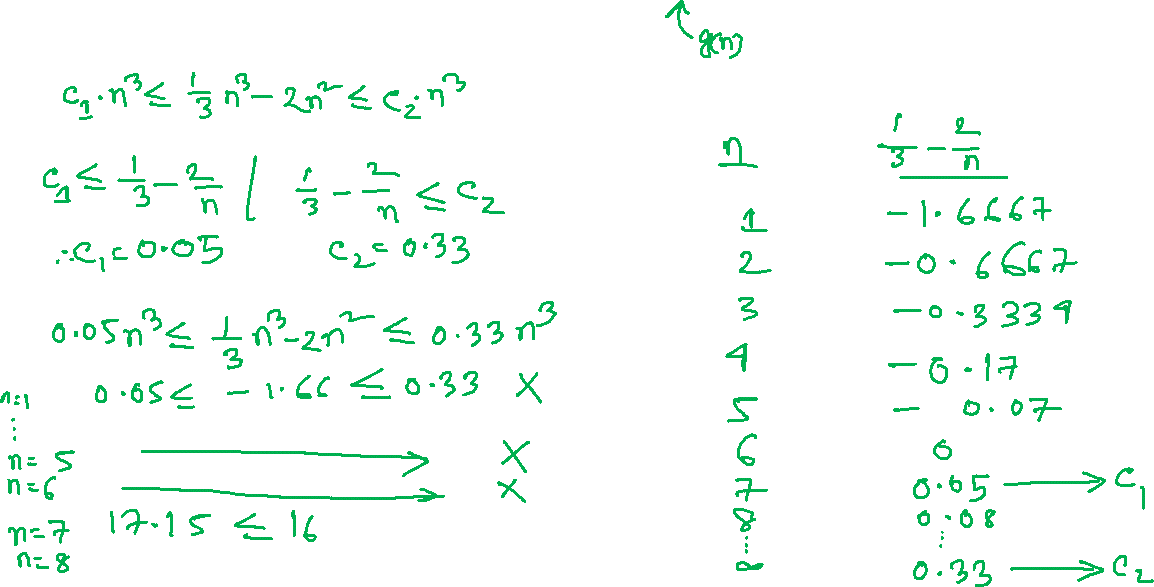 g(n)
c₁·n³ ≤ 1/3 n³ - 2n² ≤ c₂·n³
c₁ ≤ 1/3 - 2/n | 1/3 - 2/n ≤ c₂
∴ c₁ = 0.05 c₂ = 0.33
0.05n³ ≤ 1/3 n³ - 2n² ≤ 0.33n³
n=1 0.05 ≤ -1.66 ≤ 0.33 X
⋮
n=5 → X
n=6 → X
n=7 17.15 ≤ 16
n=8
n 1/3 - 2/n
1 -1.6667
2 -0.6667
3 -0.3334
4 -0.17
5 -0.07
6 0
7 0.05 → C₁
8 0.08
⋮ ⋮
∞ 0.33 → C₂